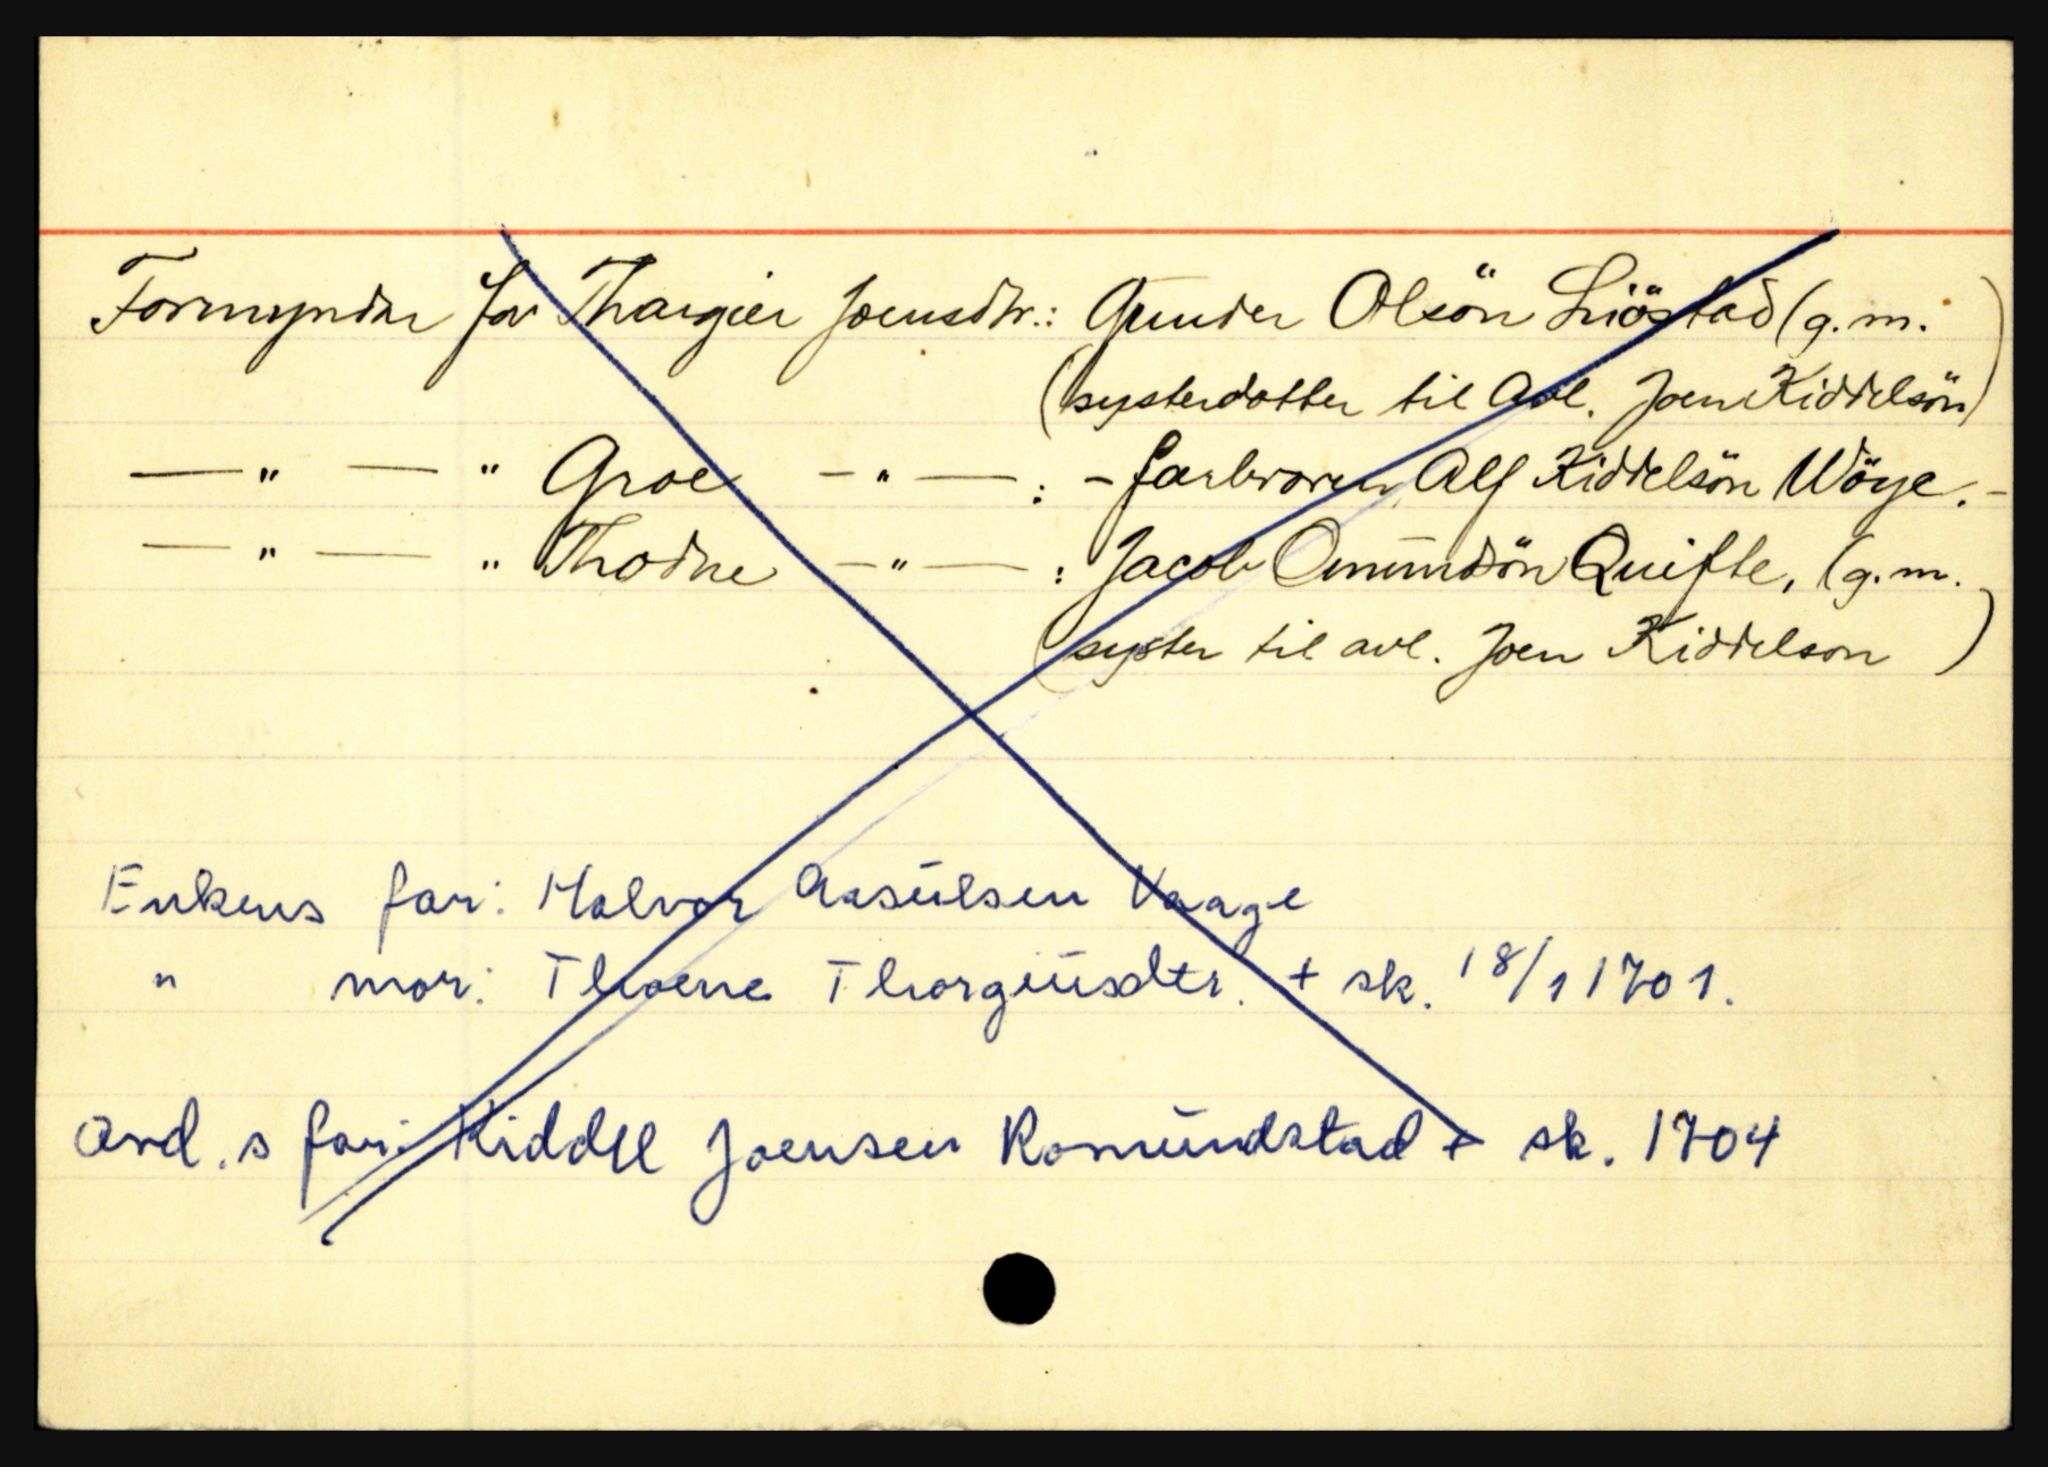 Formyndar for Thargier Joensdtr.: Gunder Olsön Liöstad (g.m.
(systerdotter til avl. Joen Kiddelsön)
— " — " Groe — " — : - farbroren Alf Kiddelsön Wöye. -
— " — " Thodne — " — : Jacob Omundsön Quifte, (g.m.
(syster til avl. Joen Kiddelson )
Enkens far: Halvor Aasulsen Vaage
" mor: Thoene Thorgiusdtr. + sk. 18/1 1701.
Avd.s far: Kiddel Joensen Romundstad + sk. 1704